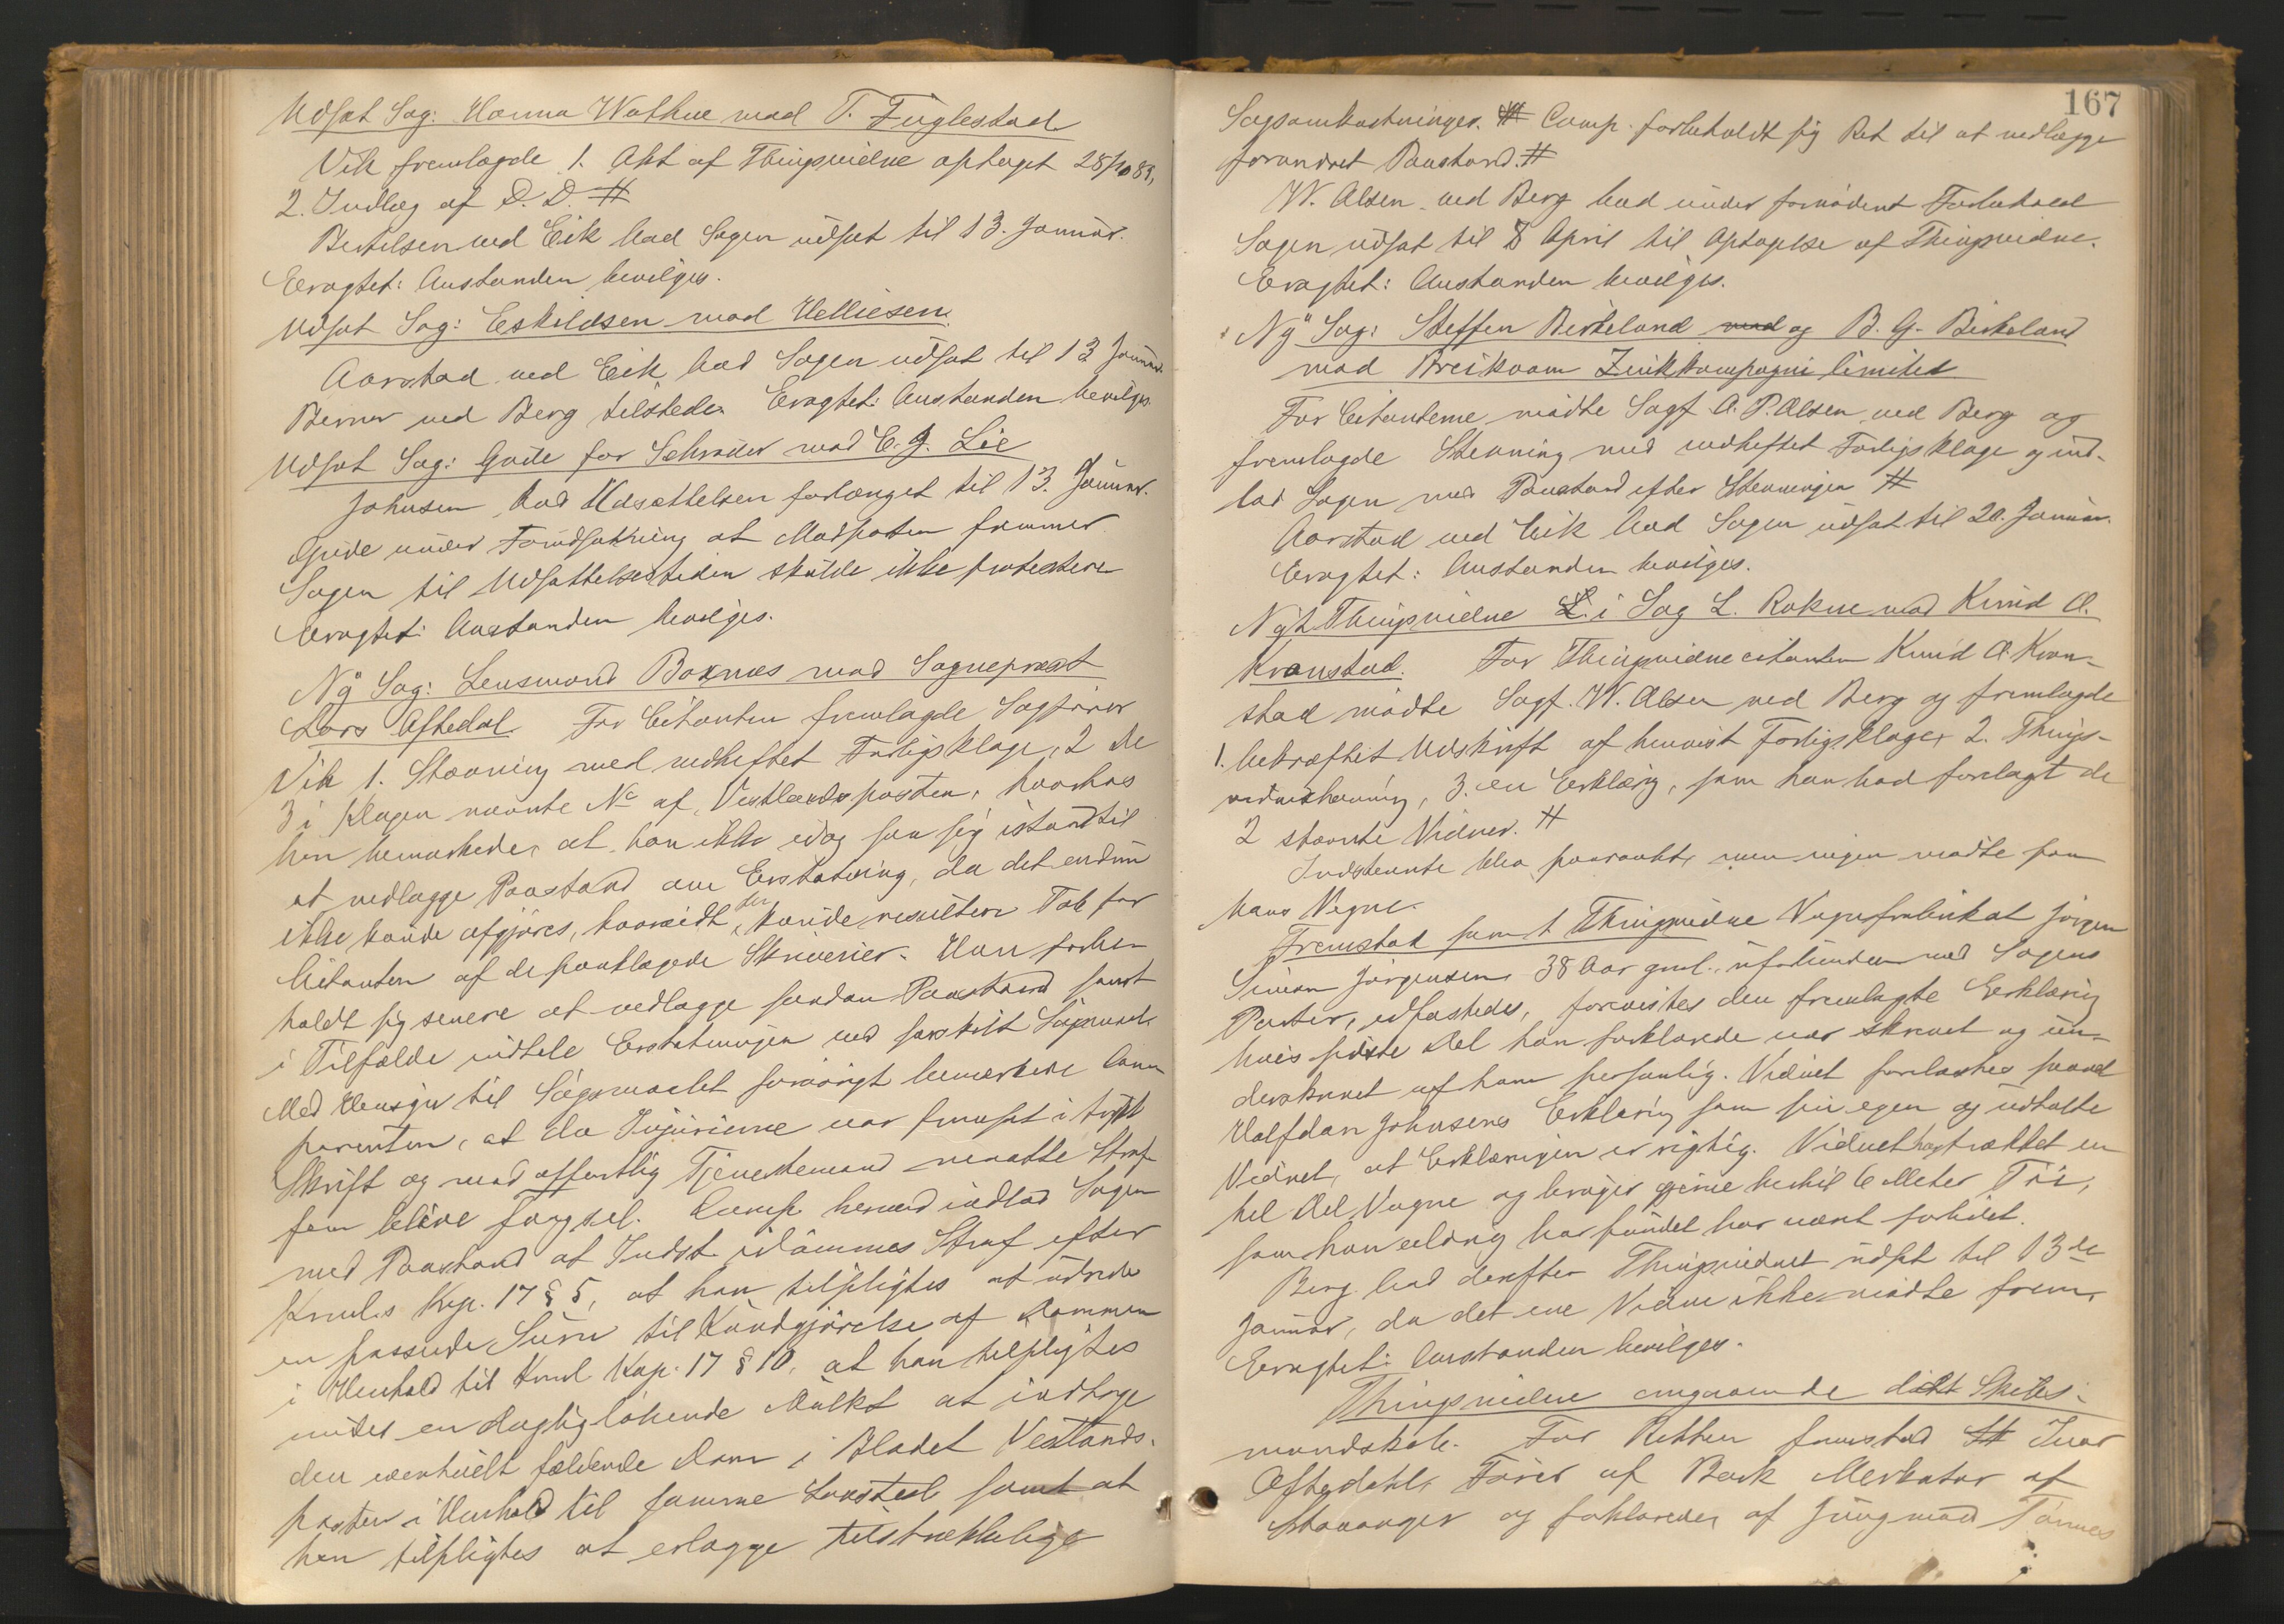 Udsat Sag: Hanna Wathne mod T. Fuglestad
Vik fremlagde 1. Akt af Thingsvidne optaget 28/10 89,
2. Indlæg af D. D. #
Bertelsen ved Eik bad Sagen udsat til 13. Januar.
Eragtet: Anstanden bevilges.
Udsat Sag: Eskildsen mod Helliesen.
Aarstad ved Eik bad Sagen udsat til 13 Januar.
Berner ved Berg tilstede. Eragtet: Anstanden bevilges.
Udsat Sag: Gude for Schrøder mod E. J. Lie
Johnsen bad Udsættelsen forlænget til 13. Januar.
Gude under Forudsætning at Modparten fremmer
Sagen til Udsættelsestiden skulde ikke protestere
Eragtet: Anstanden bevilges.
Ny Sag: Lensmand Boxnæs mod Sogneprest
Lars Oftedal. For Citanten fremlagde Sagfører
Vik 1. Stævning med vedheftet Forligsklage, 2 de
3 i Klagen nævnte No af "Vestlandsposten", hvorhos
han bemærkede, at han ikke idag saa sig istand til
at nedlægge Paastand om Erstatning, da det endnu
ikke kunde afgjøres, hvorvidt der kunde resultere Tab for
Citanten af de paaklagede Skriverier. Han forbe-
holdt sig senere at nedlægge saadan Paastand samt
i Tilfælde udtale Erstatningen ved særskilt Søgsmaal.
Med Hensyn til Søgsmaalet forøvrigt bemærkede Com-
parenten, at da Injurierne var fremsat i trykt
Skrift og mod offentlig Tjenestemand maatte Straf-
fen blive Fængsel. Comp. herved indlod Sagen
med Paastand at Indst. idømmes Straf efter
Krmls. Kap. 17 § 5, at han tilpligtes at udrede
en passende Sum til Kundgjørelse af Dommen
i Henhold til Krml Kap. 17 § 10, at han tilpligtes
under en daglig løbende Mulkt at indtage
den eventuelt fældende Dom i Bladet Vestlands-
posten i Henhold til samme Lovsted samt at
han tilpligtes at erlægge tilstrækkelige
167
Sagsomkostninger. # Comp. forbeholdt sig Ret til at nedlægge
forandret Paastand. #
W. Olsen ved Berg bad under fornødent Forbehold
Sagen udsat til 8 April til Optagelse af Thingsvidne.
Eragtet: Anstanden bevilges.
Ny Sag: Steffen Birkeland mod og B. G. Birkeland
mod Breikvam Zinkkompagni limited
For Citanterne mødte Sagf. O. P. Olsen ved Berg og
fremlagde Stevning med vedheftet Forligsklage og ind-
lod Sagen med Paastand efter Stevningen #
Aarstad ved Eik bad Sagen udsat til 20. Januar.
Eragtet: Anstanden bevilges.
Nyt Thingsvidne L. i Sag L. Rokne mod Knud O.
Kvanstad. For Thingsvidnecitanten Knud O. Kvan-
stad mødte Sagf. W. Olsen ved Berg og fremlagde
1. bekræftet Udskrift af henvist Forligsklage, 2. Things-
vidnestevning, 3. en Erklæring, som han bad forelagt de
2 stævnte Vidner. #
Indstevnte blev paaraabt, men ingen mødte paa
hans Vegne.
Fremstod som 1 Thingsvidne Vognfabrikant Jørgen
Simon Jørgensen 38 Aar gml., uforbunden med Sagens
Parter, edfæstedes, forevistes den fremlagte Erklæring
hvis sidste Del han forklarede var skrevet og un-
derskrevet af ham personlig. Vidnet forelæstes saavel
Halfdan Johnsens Erklæring som sin egen og udtalte
Vidnet, at Erklæringen er rigtig. Vidnet har trækket en
hel Del Vogne og bruger gjerne hertil 6 Meter Tøi,
som han aldrig har fundet har været forlidet.
Berg bad derefter Thingsvidnet udsat til 13de
Januar, da det ene Vidne ikke mødte frem.
Eragtet: Anstanden bevilges.
Thingsvidne angaaende dødt Skibs-
mandskab. For Retten fremstod # Ivar
Oftedahl, Fører af Bark Merkator af
Stavanger og forklarede, at Jungmand Tønnes